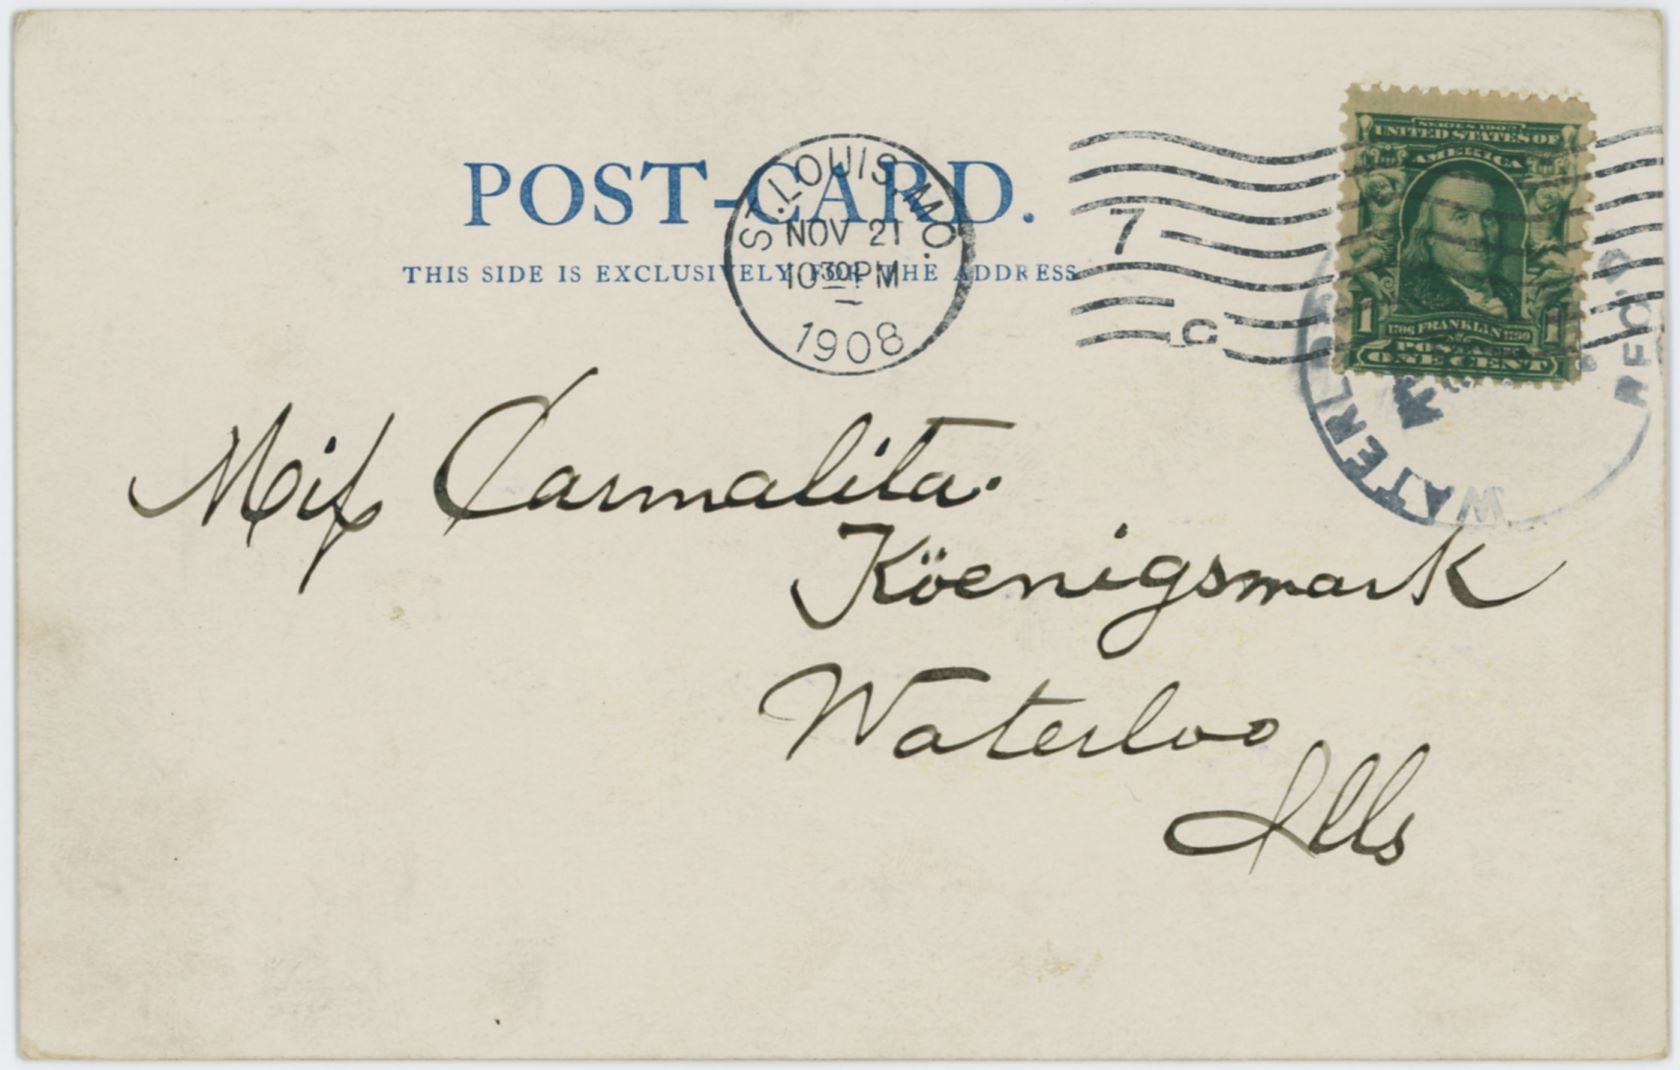 POST-CARD.
THIS SIDE IS EXCLUSIVELY FOR THE ADDRESS
ST. LOUIS, MO.
NOV 21
10 30 PM
1908
7
C
SERIES 1902
UNITED STATES OF
AMERICA
1706 FRANKLIN 1790
1 1
POSTAGE
ONE CENT
WATERLOO
REC'D
Miſs Carmalita.
Köenigsmark
Waterloo
Ills